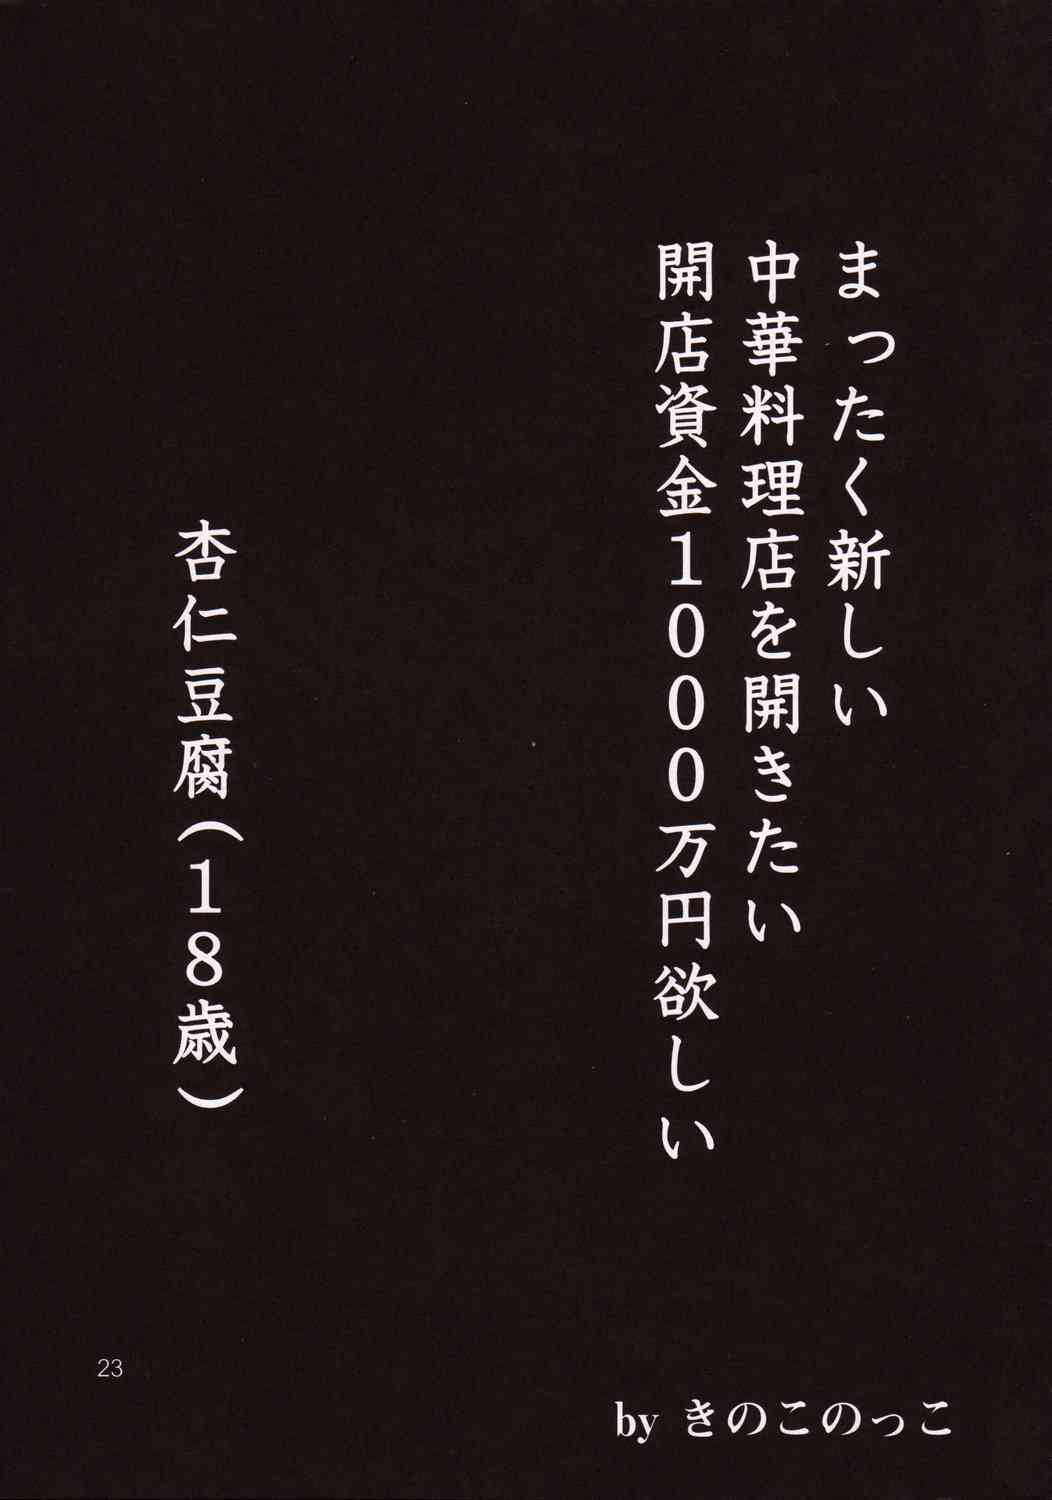 まったく新しい
中華料理店を開きたい
開店資金１０００万円欲しい
杏仁豆腐（１８歳）
23
by きのこのっこ